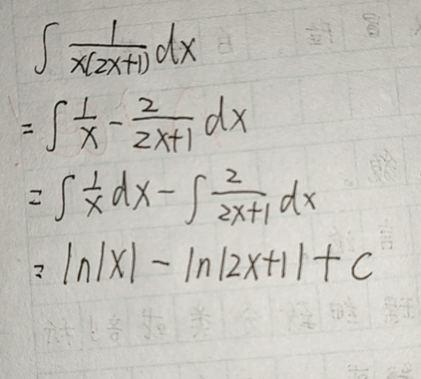 ∫ 1/(x(2x+1)) dx
= ∫ 1/x - 2/(2x+1) dx
= ∫ 1/x dx - ∫ 2/(2x+1) dx
= ln|x| - ln|2x+1| + c